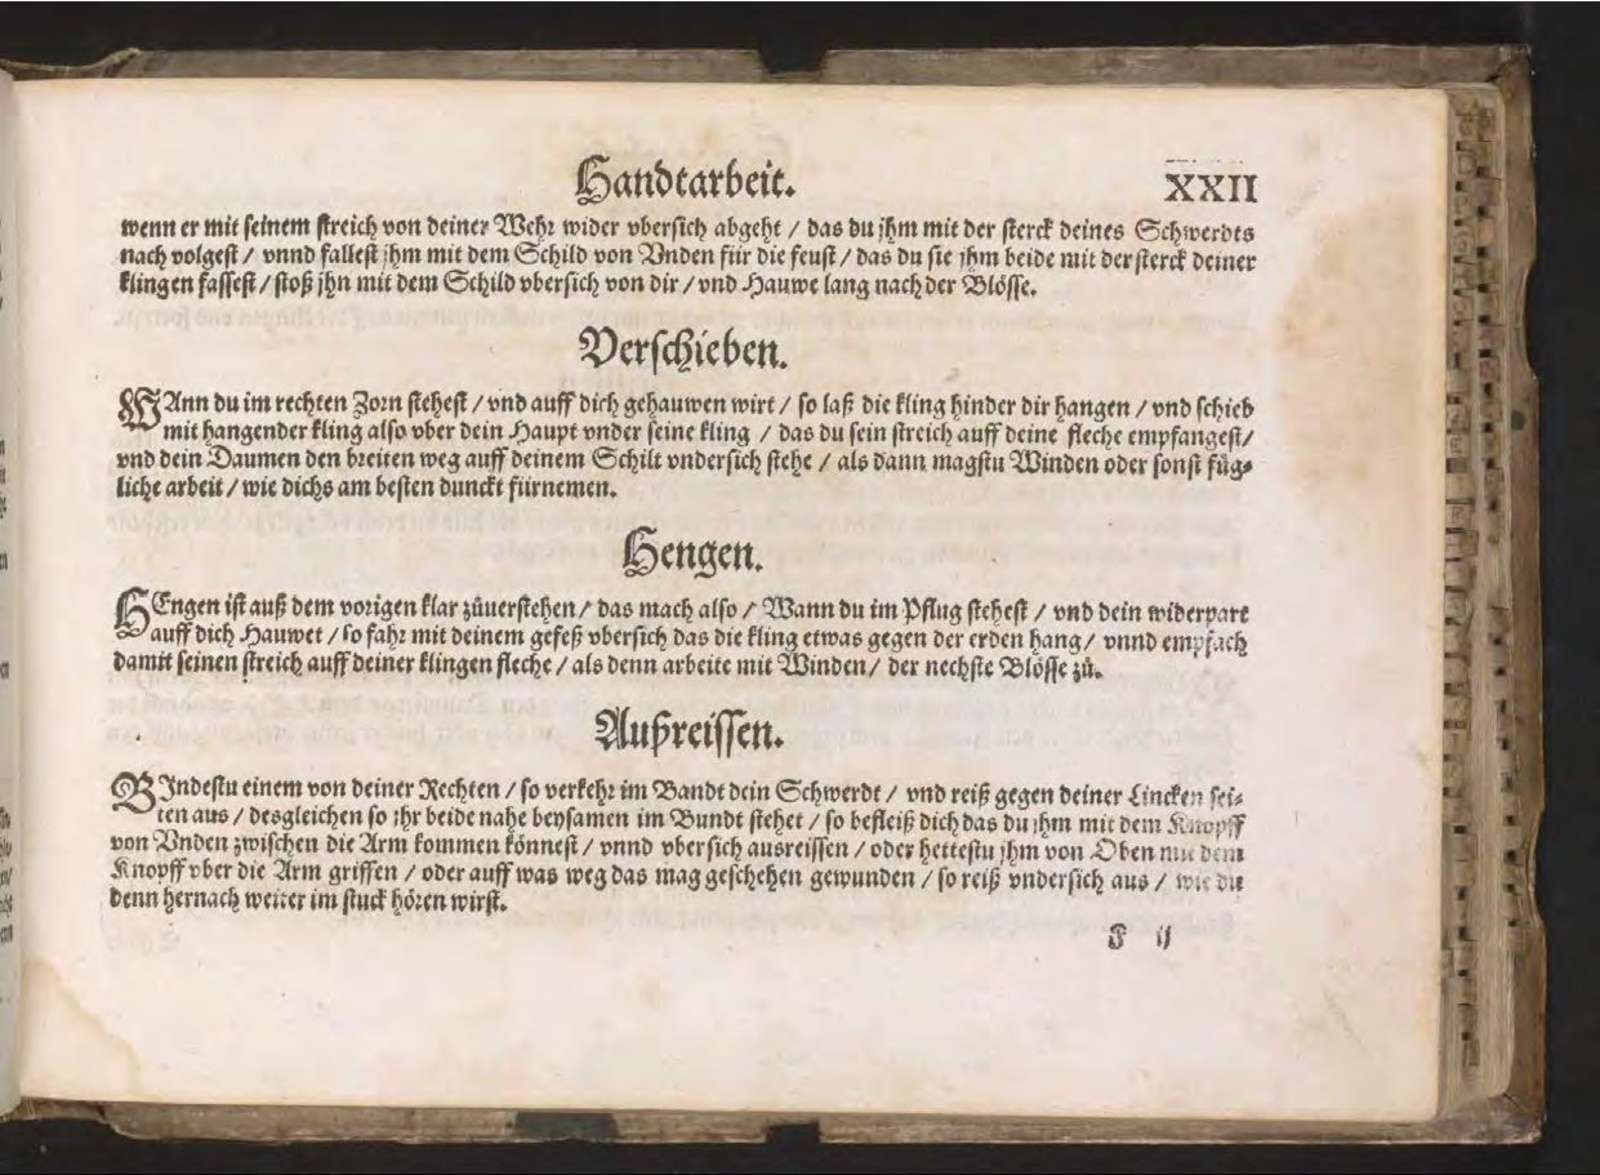 Handtarbeit. XXII
wenn er mit seinem streich von deiner Wehr wider vbersich abgeht / das du jhm mit der sterck deines Schwerdts
nach volgest / vnnd fallest jhm mit dem Schild von Vnden für die feust / das du sie jhm beide mit der sterck deiner
klingen fassest / stoß jhn mit dem Schild vbersich von dir / vnd Hauwe lang nach der Blösse.
Verschieben.
WAnn du im rechten Zorn stehest / vnd auff dich gehauwen wirt / so laß die kling hinder dir hangen / vnd schieb
mit hangender kling also vber dein Haupt vnder seine kling / das du sein streich auff deine fleche empfangest /
vnd dein Daumen den breiten weg auff deinem Schilt vndersich stehe / als dann magstu Winden oder sonst füg⸗
liche arbeit / wie dichs am besten dunckt fürnemen.
Hengen.
HEngen ist auß dem vorigen klar zůuerstehen / das mach also / Wann du im Pflug stehest / vnd dein widerpart
auff dich Hauwet / so fahr mit deinem gefeß vbersich das die kling etwas gegen der erden hang / vnnd empfach
damit seinen streich auff deiner klingen fleche / als denn arbeite mit Winden / der nechste Blösse zů.
Außreissen.
BIndestu einem von deiner Rechten / so verkehr im Bandt dein Schwerdt / vnd reiß gegen deiner Lincken sei⸗
ten aus / desgleichen so ihr beide nahe beysamen im Bundt stehet / so befleiß dich das du jhm mit dem Knopff
von Vnden zwischen die Arm kommen könnest / vnnd vbersich ausreissen / oder hettestu jhm von Oben mit dem
Knopff vber die Arm griffen / oder auff was weg das mag geschehen gewunden / so reiß vndersich aus / wie du
denn hernach weiter im stuck hören wirst.
F ij